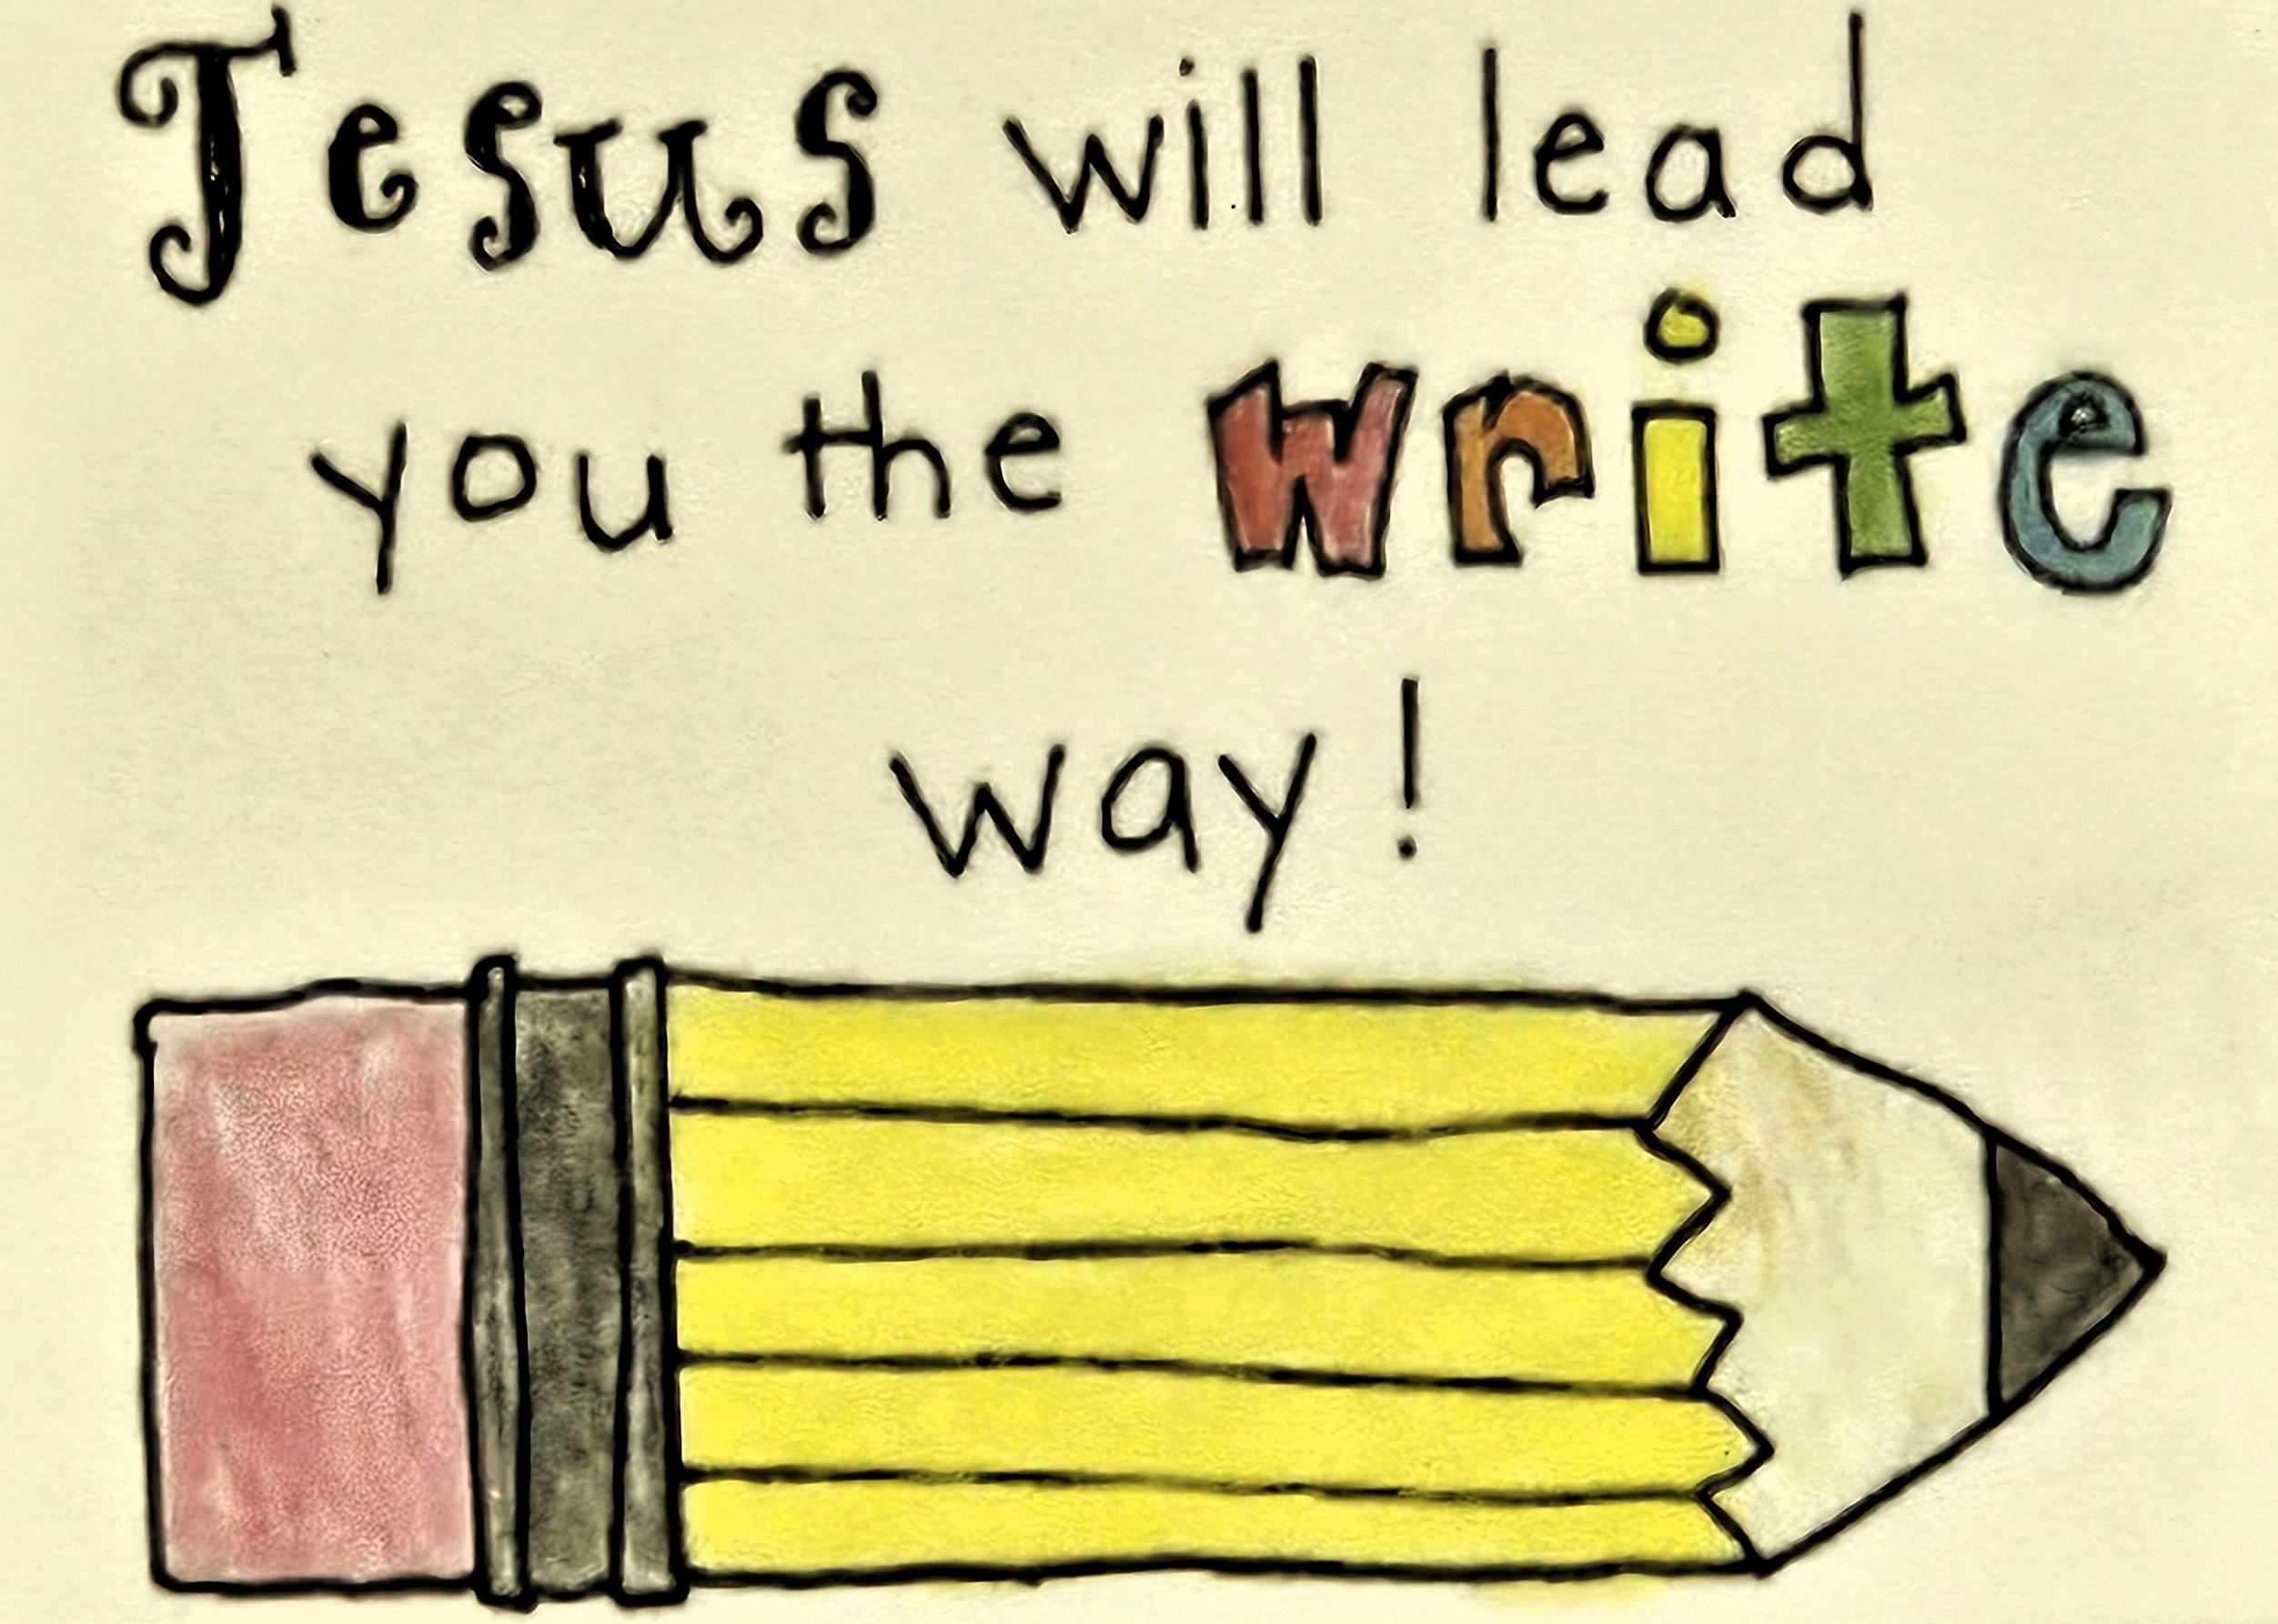 Jesus will lead
you the write
way!